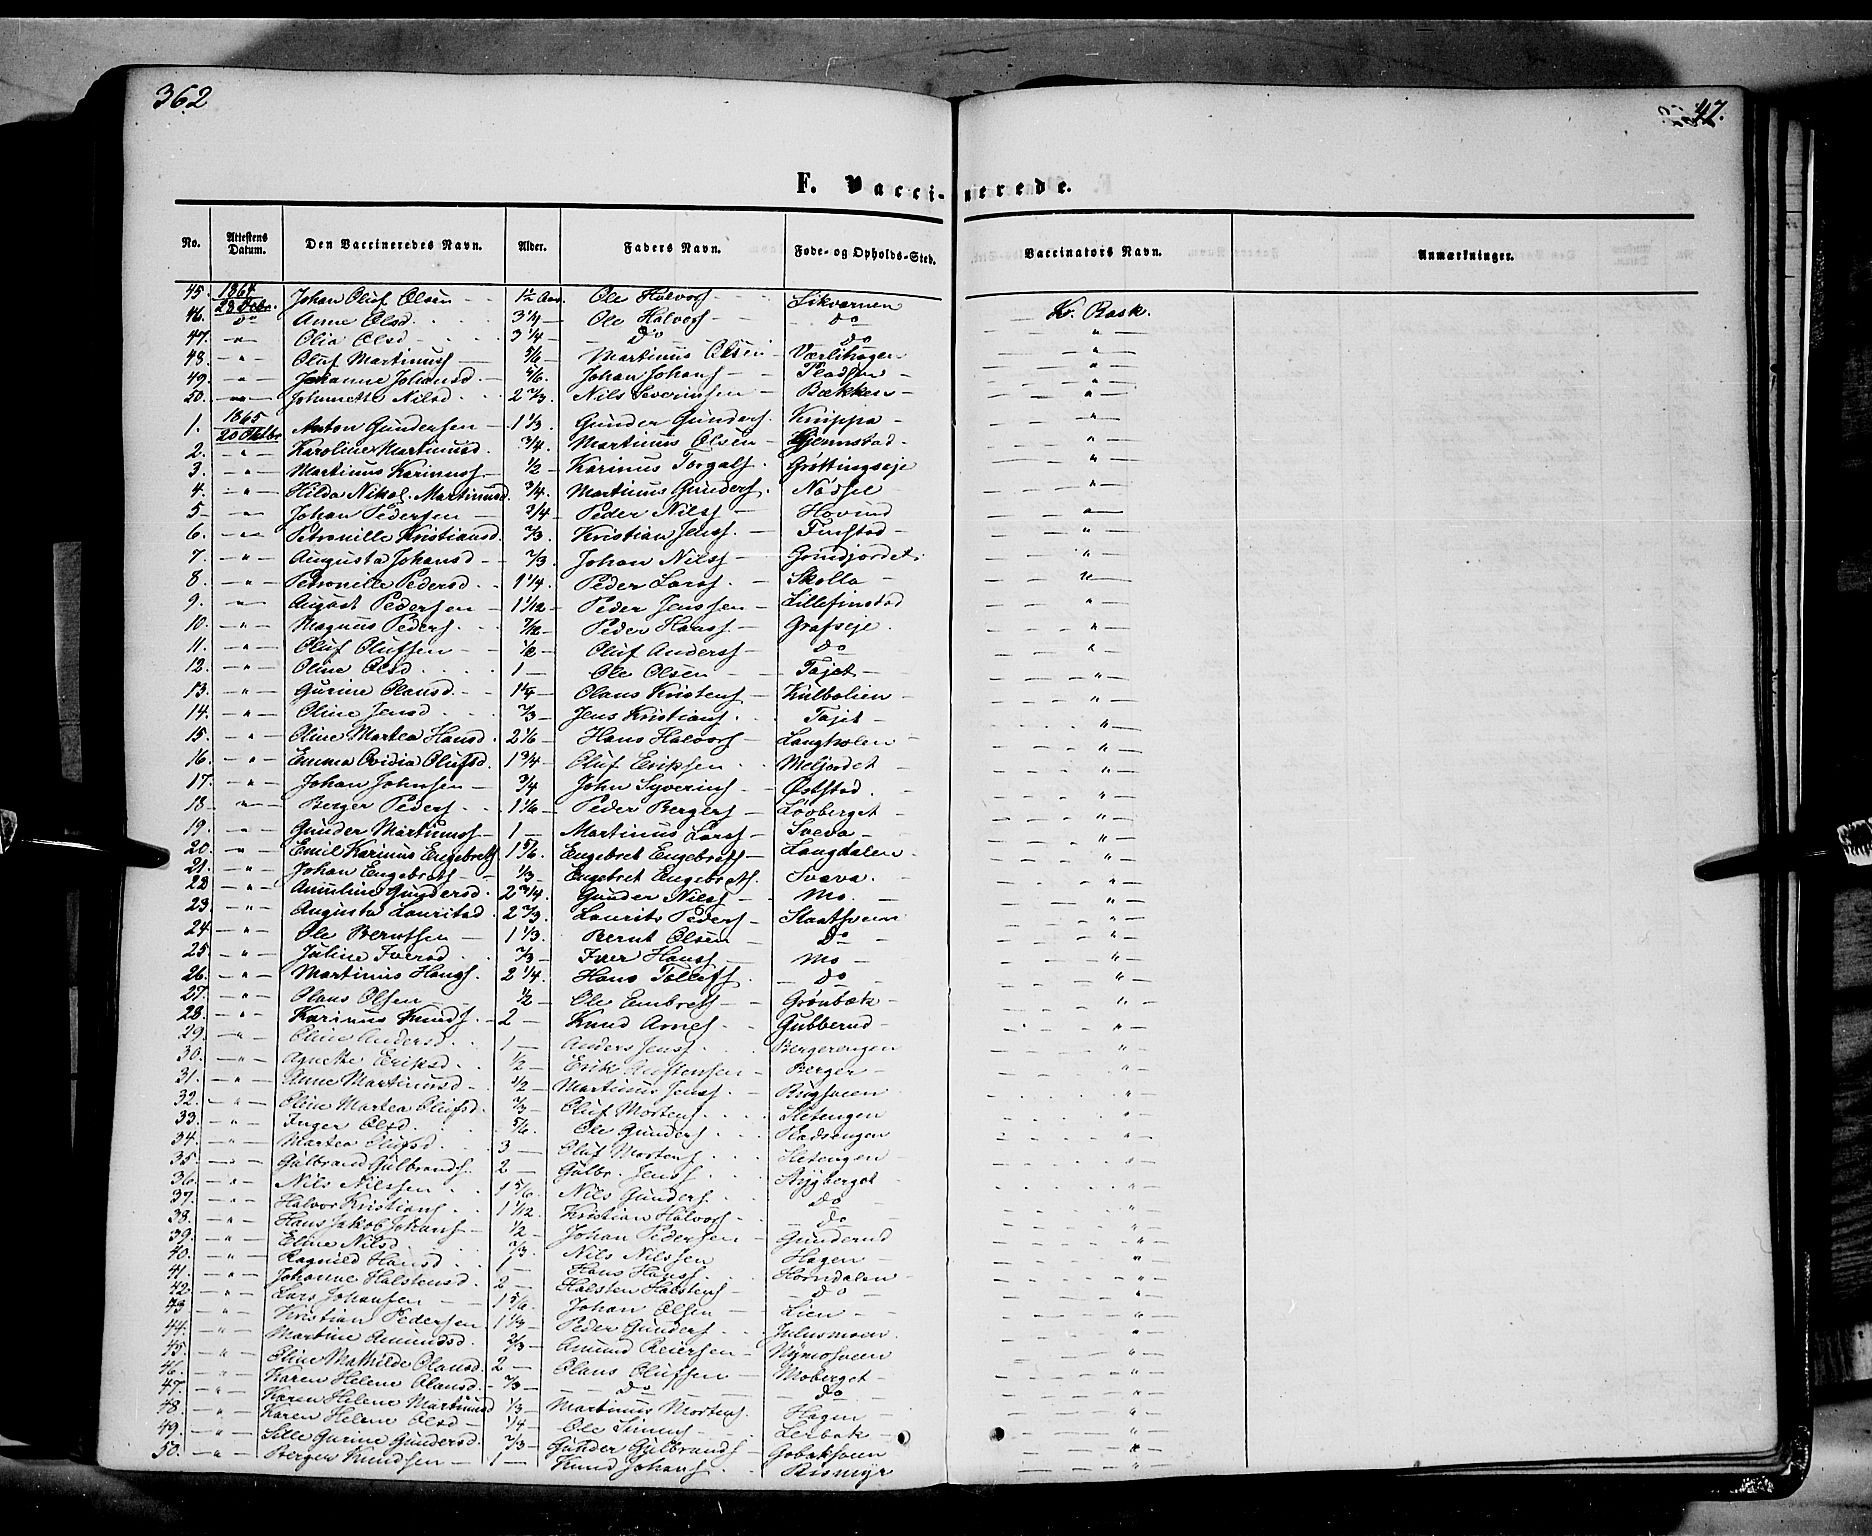 362
47.
F. Vaccinerede.
No. Attestens Datum. Den Vaccineredes Navn. Alder. Faders Navn. Føde- og Opholds-Sted. Vaccinators Navn. Anmærkninger.
45. 1864 23 Johan Oluf Olsen 1½ Aar Ole Halvors. Likvernen Kr. Rask.
46. do Anne Olsd. 3 1/4 — Ole Halvors. Do — " —
47. — " — Olia Olsd. 3 1/4 — Do Do — " —
48. — " — Oluf Martinus. 5/6 — Martinus Olsen Værlihagen — " —
49. — " — Johanne Johansd. 5/6. Johan Johans. Pladsen — " —
50. — " — Johanette Nilsd. 2 2/3. Nils Severinsen Bækken — " —
1. 1865 20 Oktbr Anton Gundersen 1 1/3. Gunder Gunders. Knippa — " —
2. — " — Karoline Martinusd. 3/4. Martinus Olsen Gjennestad — " —
3. — " — Martinus Karinuss. 1/2 — Karinus Torgals. Grøttingseje — " —
4. — " — Hilda Nikol. Martinusd. 3/4. Martinus Gunders. Nødsle — " —
5. — " — Johan Pedersen 3/4 — Peder Nilss. Hovind — " —
6. — " — Petronille Kristiansd. 2/3. Kristian Jenss. Finstad — " —
7. — " — Augusta Johansd. 2/3. Johan Nilss. Grindjordet — " —
8. — " — Petronille Pedersd. 1 1/4. Peder Larss. Skolla — " —
9. — " — August Pedersen 1 1/12 — Peder Jenssen Lillefinstad — " —
10. — " — Magnus Peders. 7/12 — Peder Hanss. Grafseje — " —
11. — " — Oluf Olufsen 1/6 — Oluf Anderss. Do — " —
12. — " — Oline Olsd. 1 — Ole Olsen Tajet — " —
13. — " — Gurine Olansd. 1 1/4 — Olaus Kristens. Kulbolien — " —
14. — " — Oline Jensd. 2/3 — Jens Kristians. Tajet — " —
15. — " — Oline Martea Hansd. 2 1/6 — Hans Halvors. Langholen — " —
16. — " — Emma Ovidia Olufsd. 1 3/4 — Oluf Eriksen Meljordet — " —
17. — " — Johan Johnsen 3/4 John Syverins. Øststad. — " —
18. — " — Berger Peders. 1 1/6 — Peder Bergers. Løvberget — " —
19. — " — Gunder Martinuss. 1 — Martinus Larss. Sveva — " —
20. — " — Emil Karinus Engebrets. 1 5/6. Engebret Engebrets. Langdalen — " —
21. — " — Johan Engebrets. 1/3 — Engebret Engebrets. Svæva — " —
22. — " — Annline Gundersd. 2 3/4. Gunder Nilss. Mo. — " —
23. — " — Augusta Lauritsd. 2 2/3. Laurits Peders. Staatsveen — " —
24. — " — Ole Berntsen 1 1/3. Bernt Olsen Do — " —
25. — " — Juline Iversd. 2/3 — Iver Hanss. Mo — " —
26. — " — Martinus Hanss. 2 1/4. Hans Tollefs. Do — " —
27. — " — Olaus Olsen 1/2 — Ole Embrets. Grønbæk — " —
28. — " — Karinus Knuds. 2 — Knud Arnes. Gubberud — " —
29. — " — Oline Andersd. 1 — Anders Jenss. Bergerengen — " —
30. — " — Agnethe Eriksd. 1/2 — Erik Austensen Berger — " —
31. — " — Anne Martinusd. 1/2 — Martinus Jenss. Rugsveen — " —
32. — " — Oline Martea Olufsd. 2/3 — Oluf Mortens. Sletengen — " —
33. — " — Inger Olsd. 5/6. Ole Gunders. — " —
34. — " — Martea Olufsd. 3 — Oluf Mortens. Sletengen — " —
35. — " — Gulbrand Gulbrands. 2 — Gulbr. Jenss. Rygberget — " —
36. — " — Nils Nilssen 1 5/6. Nils Gunders. Do — " —
37. — " — Halvor Kristians. 1 1/12. Kristian Halvors. Do — " —
38. — " — Hans Jakob Johans. 1/2 — Johan Pedersen Gunderud — " —
39. — " — Eline Nilsd. 2/3. Nils Nilssen Hagen — " —
40. — " — Ragnild Hansd. 1 — Hans Hanss. Horndalen — " —
41. — " — Johanne Halstensd. 2 — Halsten Halstens. Do — " —
42. — " — Lars Johansen 1 5/6. Johan Olsen Lien — " —
43 — " — Kristian Pedersen 1 1/3 — Peder Gunders. Julusmoen — " —
44. — " — Martine Amundsd. 2/3 — Amund Reiersen Mymosveen — " —
45. — " — Oline Mathilde Olausd. 2 — Olaus Olufsen Moberget — " —
46. — " — Karen Helene Olausd. 2/3 — Do Do — " —
47. — " — Karen Helene Martinusd 1/3 — Martinus Mortens. Hagen — " —
48. — " — Karen Helene Olsd. 1/4 — Ole Simens. Lerbæk — " —
49. — " — Sille Gurine Gundersd. 2/3 — Gunder Gulbrands. Gobæksveen — " —
50. — " — Berger Knudsen 1 — Knud Johans. Rismyr — " —